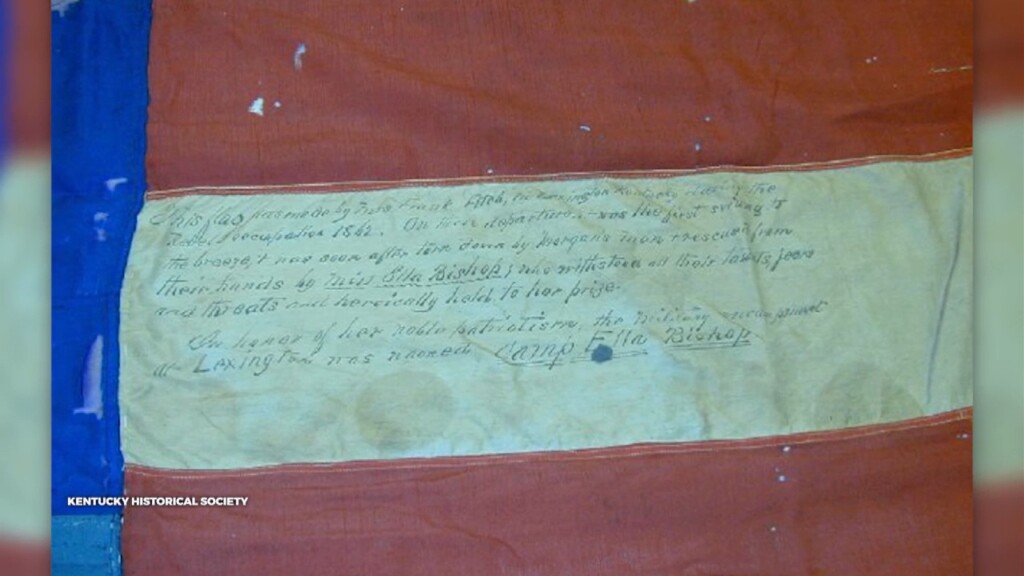 This flag was made by Mrs Frank Fitch, in Lexington Kentucky during the
Rebel occupation 1862. On their departure was the first swung to
the breeze, t was soon after torn down by Morgan's men rescued from
their hands by Miss Ella Bishop, who withstood all their taunts, jeers
and threats and heroically held to her prize.
In honor of her noble patriotism, the military encampment
at Lexington was named Camp Ella Bishop
KENTUCKY HISTORICAL SOCIETY